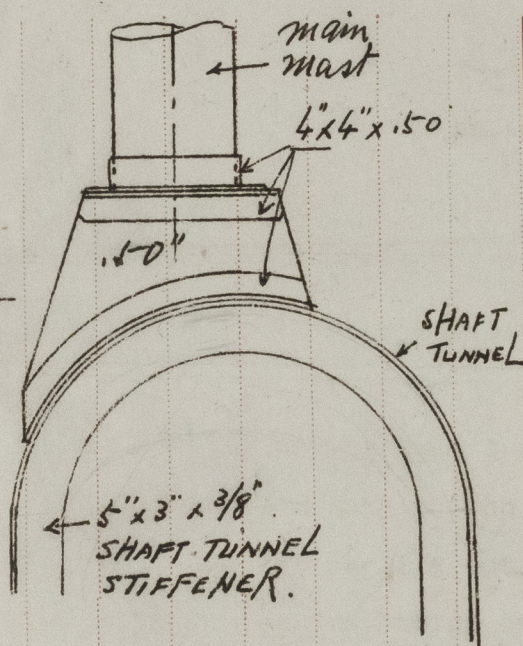 main
mast
4"x4"x.50
.50"
SHAFT
TUNNEL
5"x3"x3/8"
SHAFT TUNNEL
STIFFENER.